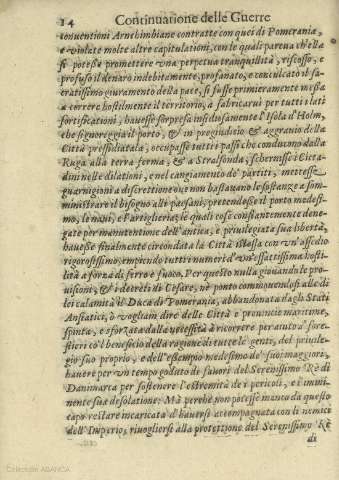 14 Continuatione delle Guerre
conuentioni Arnehimbiane contratte con quei di Pomerania,
e violate molte altre capitulationi, con le quali pareua ch'ella
si potesse promettere vna perpetua tranquillità, riscosso, e
profuso il denaro indebitamente, profanato, e conculcato il sa-
cratissimo giuramento della pace, si fusse primieramente messa
a correre hostilmente il territorio, a fabricarui per tutti i lati
fortificationi, hauesse sorpresa insidiosamente l'Isola d'Holm,
che signoreggia il porto, & in pregiudicio & aggrauio della
Città presidiatala, occupasse tutti i passi che conduano dalla
Ruga alla terra ferma, & a Stralsonda, schernisse i Citta-
dini nelle dilationi, e nel cangiamento de' partiti, mettesse
guarnigioni a discrettione oue non bastauano le sostanze a som-
ministrare il bisogno alli paesani, pretendesse il porto medesi-
mo, le naui, e l'artiglieria; le quali cose constantemente dene-
gate per manutentione dell'antica, e priuilegiata sua libertà,
hauesse finalmente circondata la Città istessa con vn'assedio
rigorosissimo, empiendo tutti i numeri d'vn'essattissima hosti-
lità a forza di ferro e fuoco. Per questo nulla giouando le pro-
uisioni, & i decreti di Cesare, nè ponto commouendosi alle di
lei calamità il Duca di Pomerania, abbandonata dagli Stati
Ansiatici, ò vogliam dire delle Città e prouincie maritime,
spinta, e sforzata dalla necessità à ricorrere per aiuto a' fore-
stieri co'l beneficio della ragione di tutte le genti, del priuile-
gio suo proprio, e dell'essempio medesimo de' suoi maggiori,
hauere per vn tempo goduto di fauori del Serenissimo Rè di
Danimarca per sostenere l'estremità de i pericoli, e immi-
nente sua desolatione: Mà perche non potesse manco da questo
capo restare incaricata d'hauersi accompagnata con li nemici
dell'Imperio, riuogliersi alla protettione del Serenissimo Rè
di
Colección ABANCA